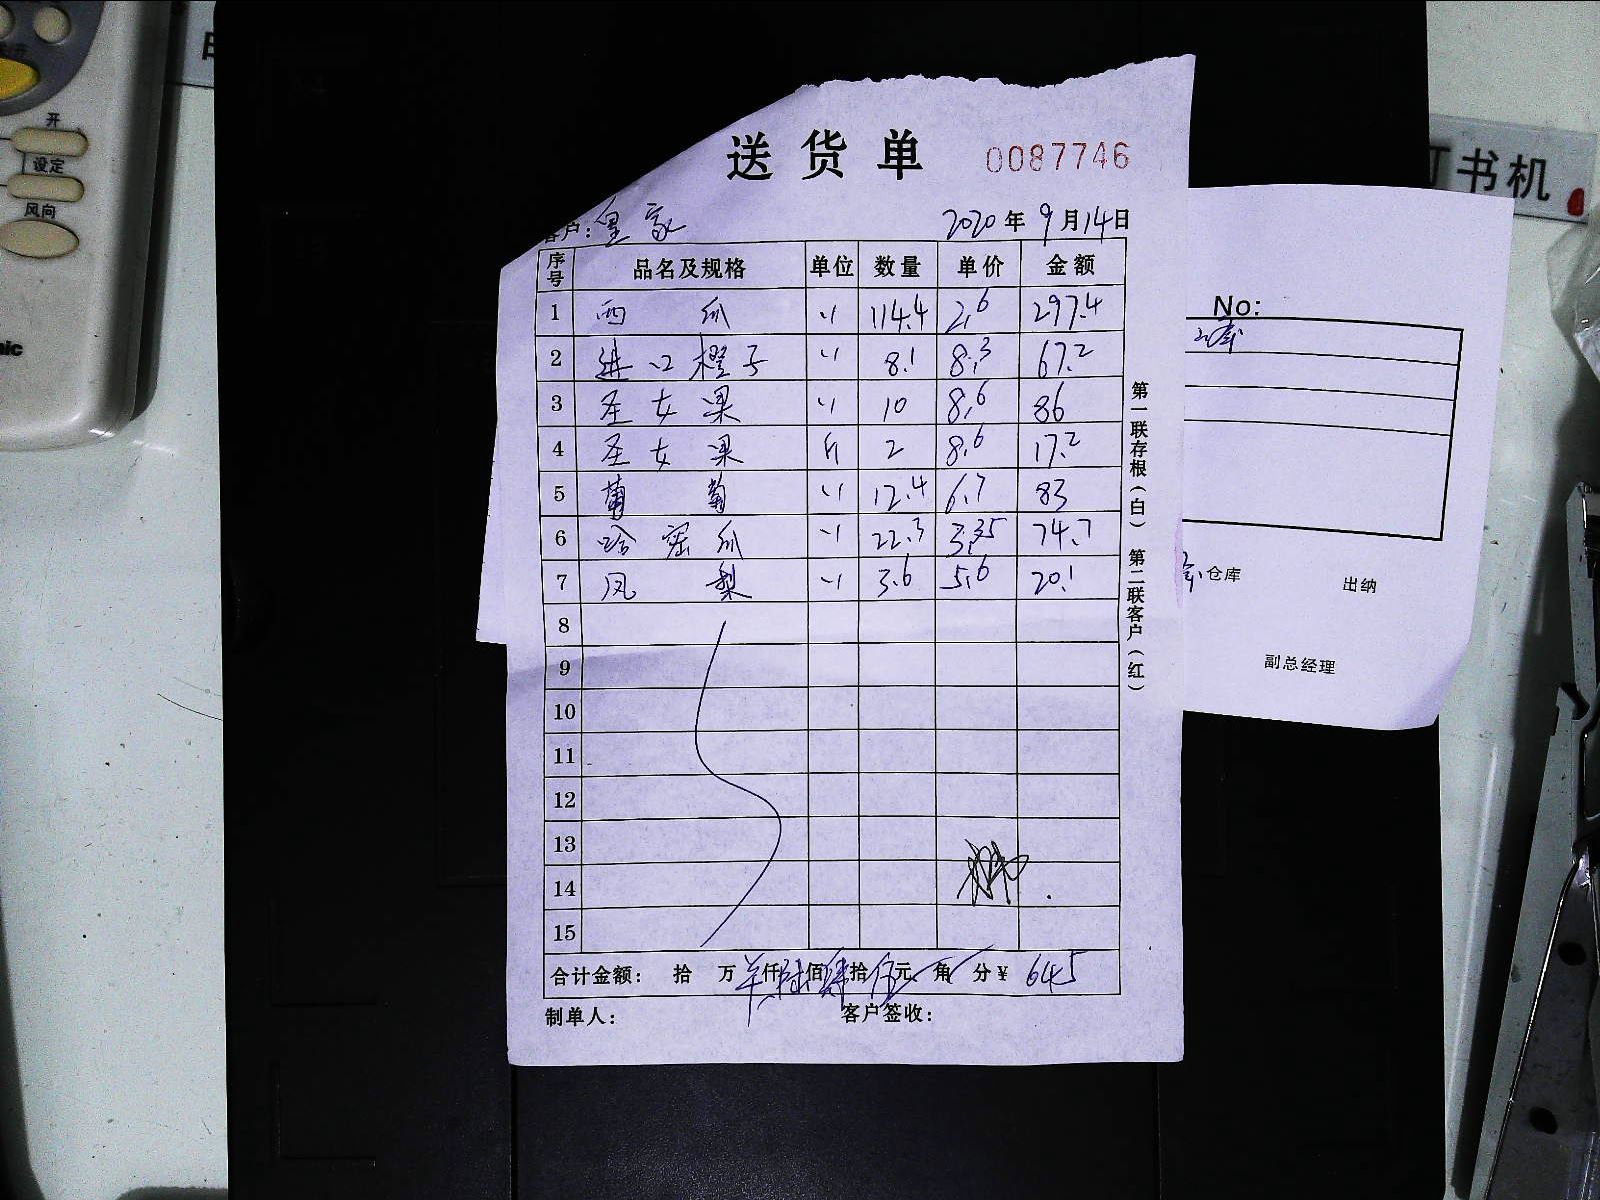 开
设定
风向
nic
书机
送货单 0087746
客户：皇家 2020年9月14日
序号 品名及规格 单位 数量 单价 金额
1 西瓜 〃 114.4 2.6 297.4
2 进口橙子 〃 8.1 8.3 67.2
3 圣女果 〃 10 8.6 86
4 圣女果 斤 2 8.6 17.2
5 葡萄 〃 12.4 6.7 83
6 哈密瓜 〃 22.3 3.35 74.7
7 凤梨 〃 3.6 5.6 20.1
8
9
10
11
12
13
14
15
合计金额： 拾 万 仟陆佰肆拾伍元 角 分￥ 645
制单人： 客户签收：
第一联存根（白） 第二联客户（红）
No:
仓库 出纳
副总经理